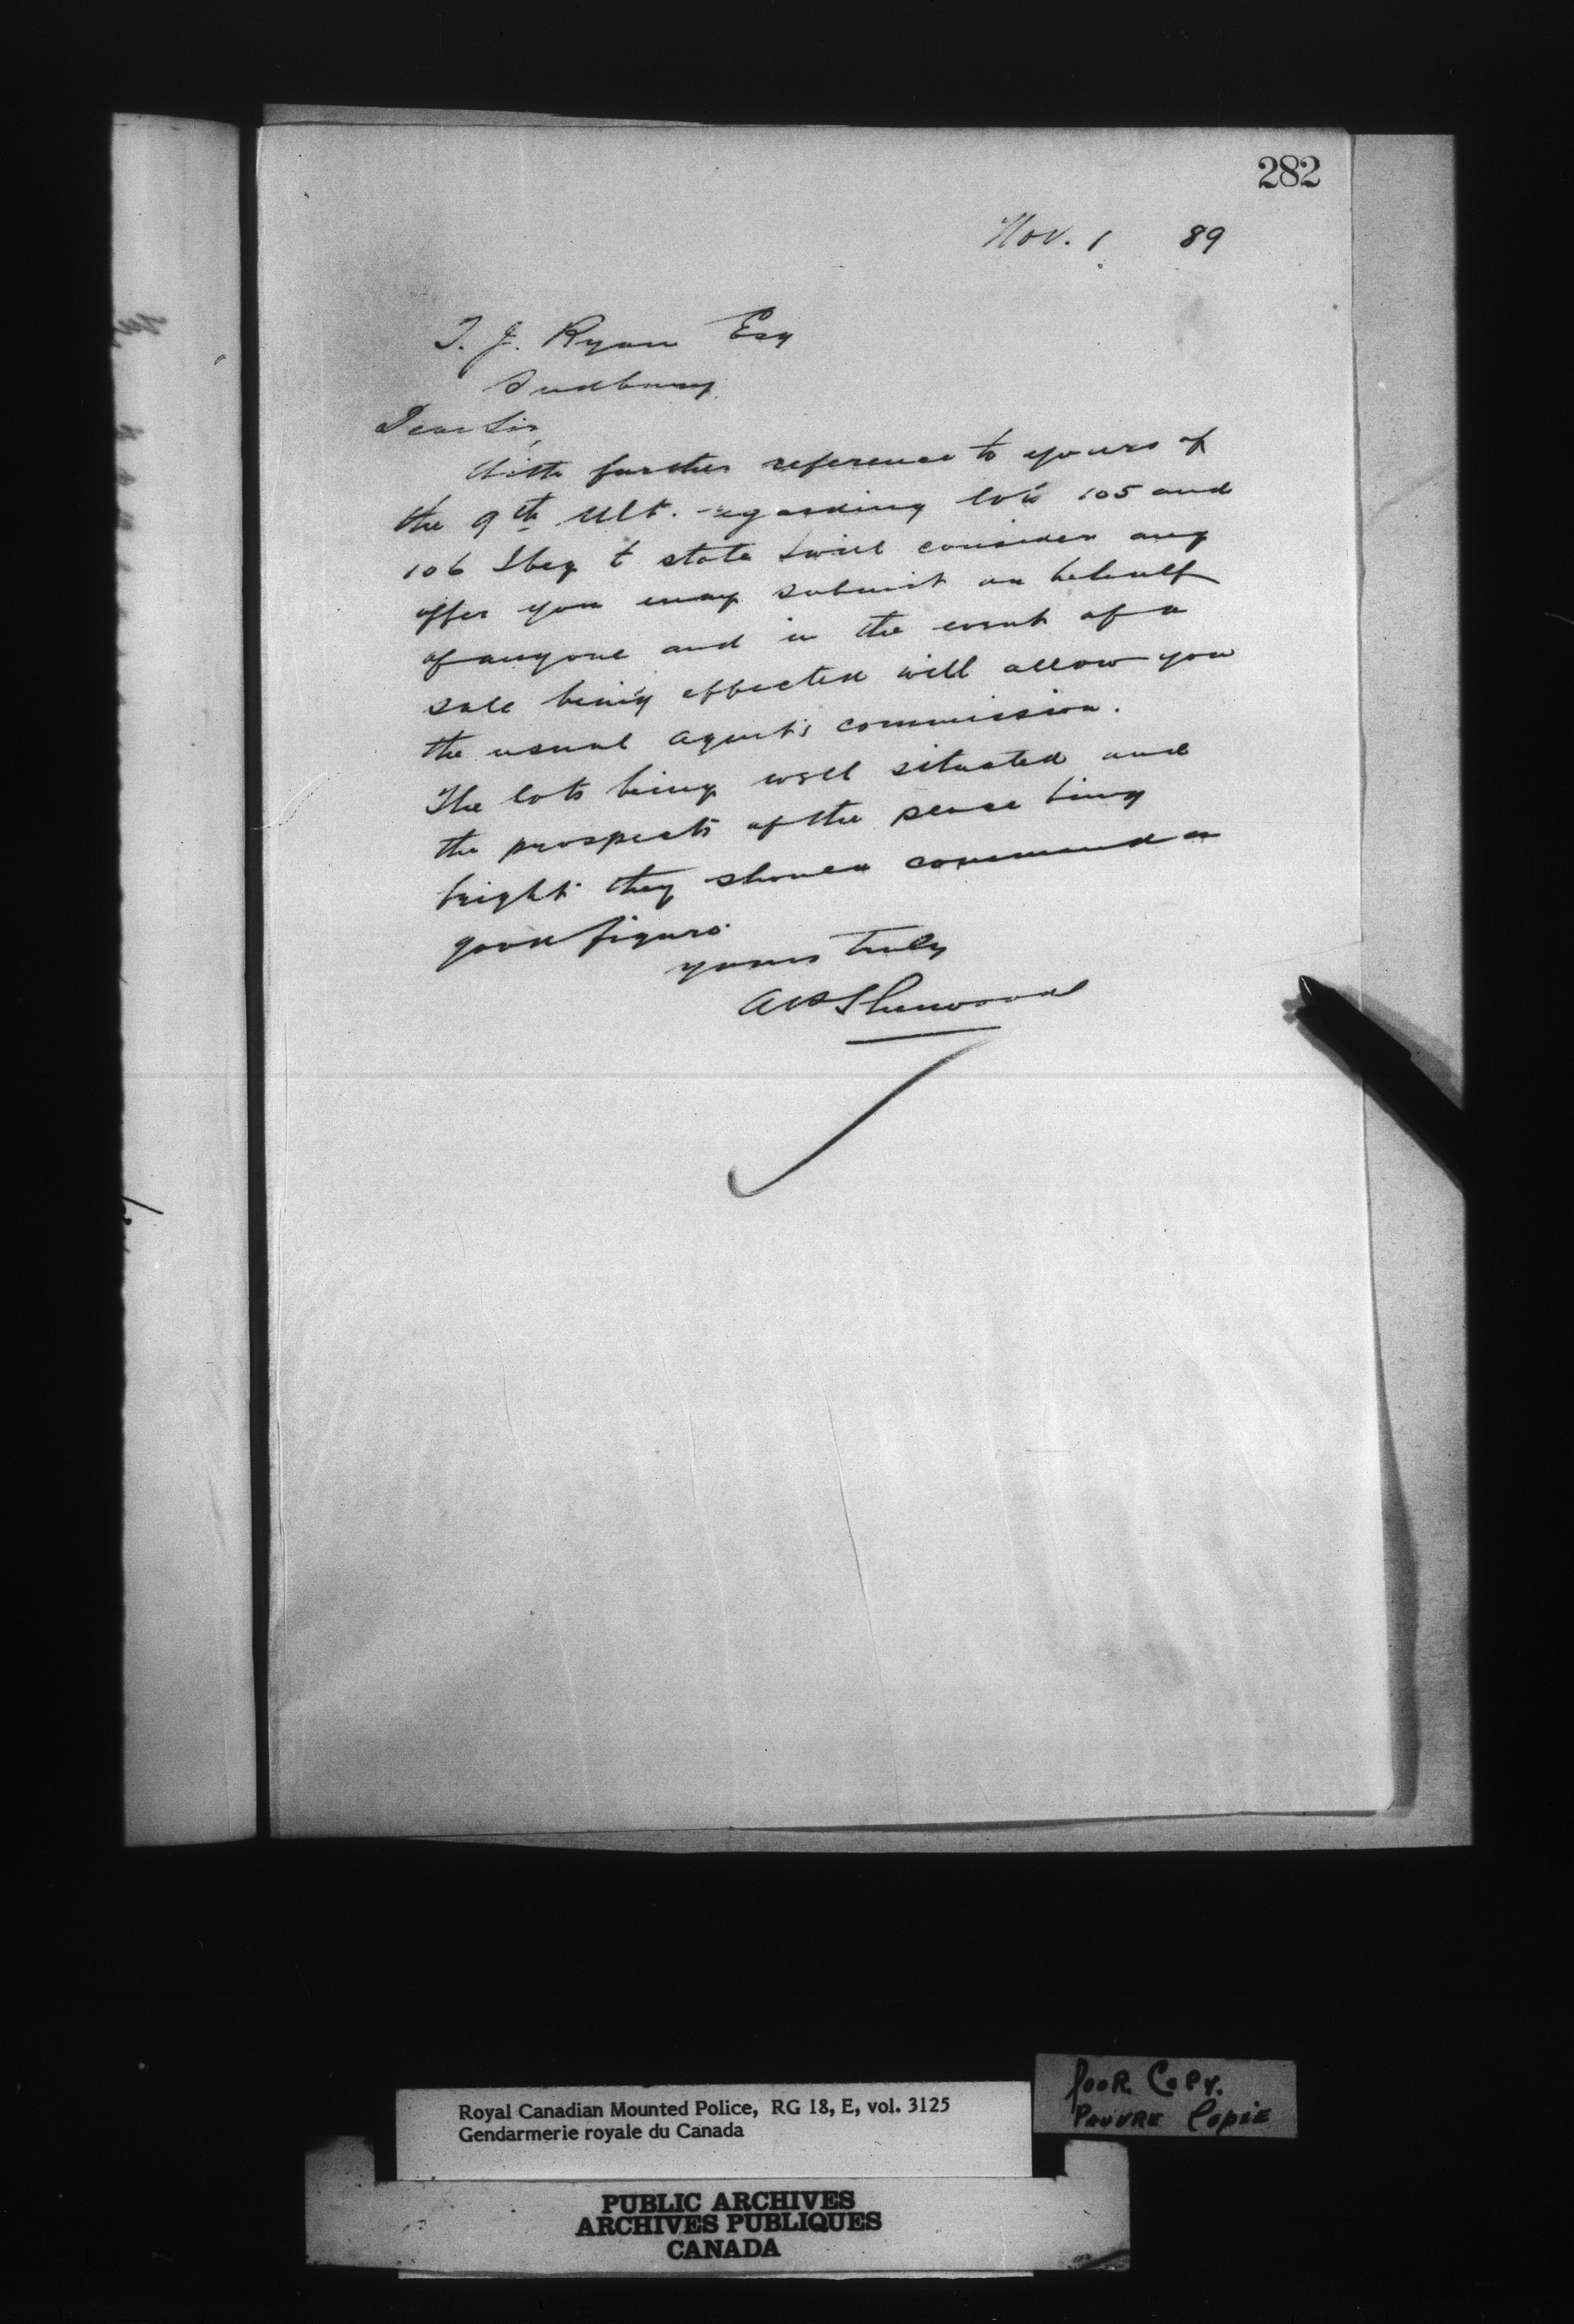 282
Nov. 1 89
T. J. Ryan Esq
Sudbury
Dear Sir,
With further reference to yours of
the 9th Ult. regarding lots 105 and
106 I beg to state I will consider any
offer you may submit on behalf
of anyone and in the event of a
sale being effected will allow you
the usual agent's commission.
The lots being well situated and
the prospects of the place being
bright they should command a
good figure.
yours truly
A P Sherwood
Poor Copy.
Pauvre Copie
Royal Canadian Mounted Police, RG 18, E, vol. 3125
Gendarmerie royale du Canada
PUBLIC ARCHIVES
ARCHIVES PUBLIQUES
CANADA